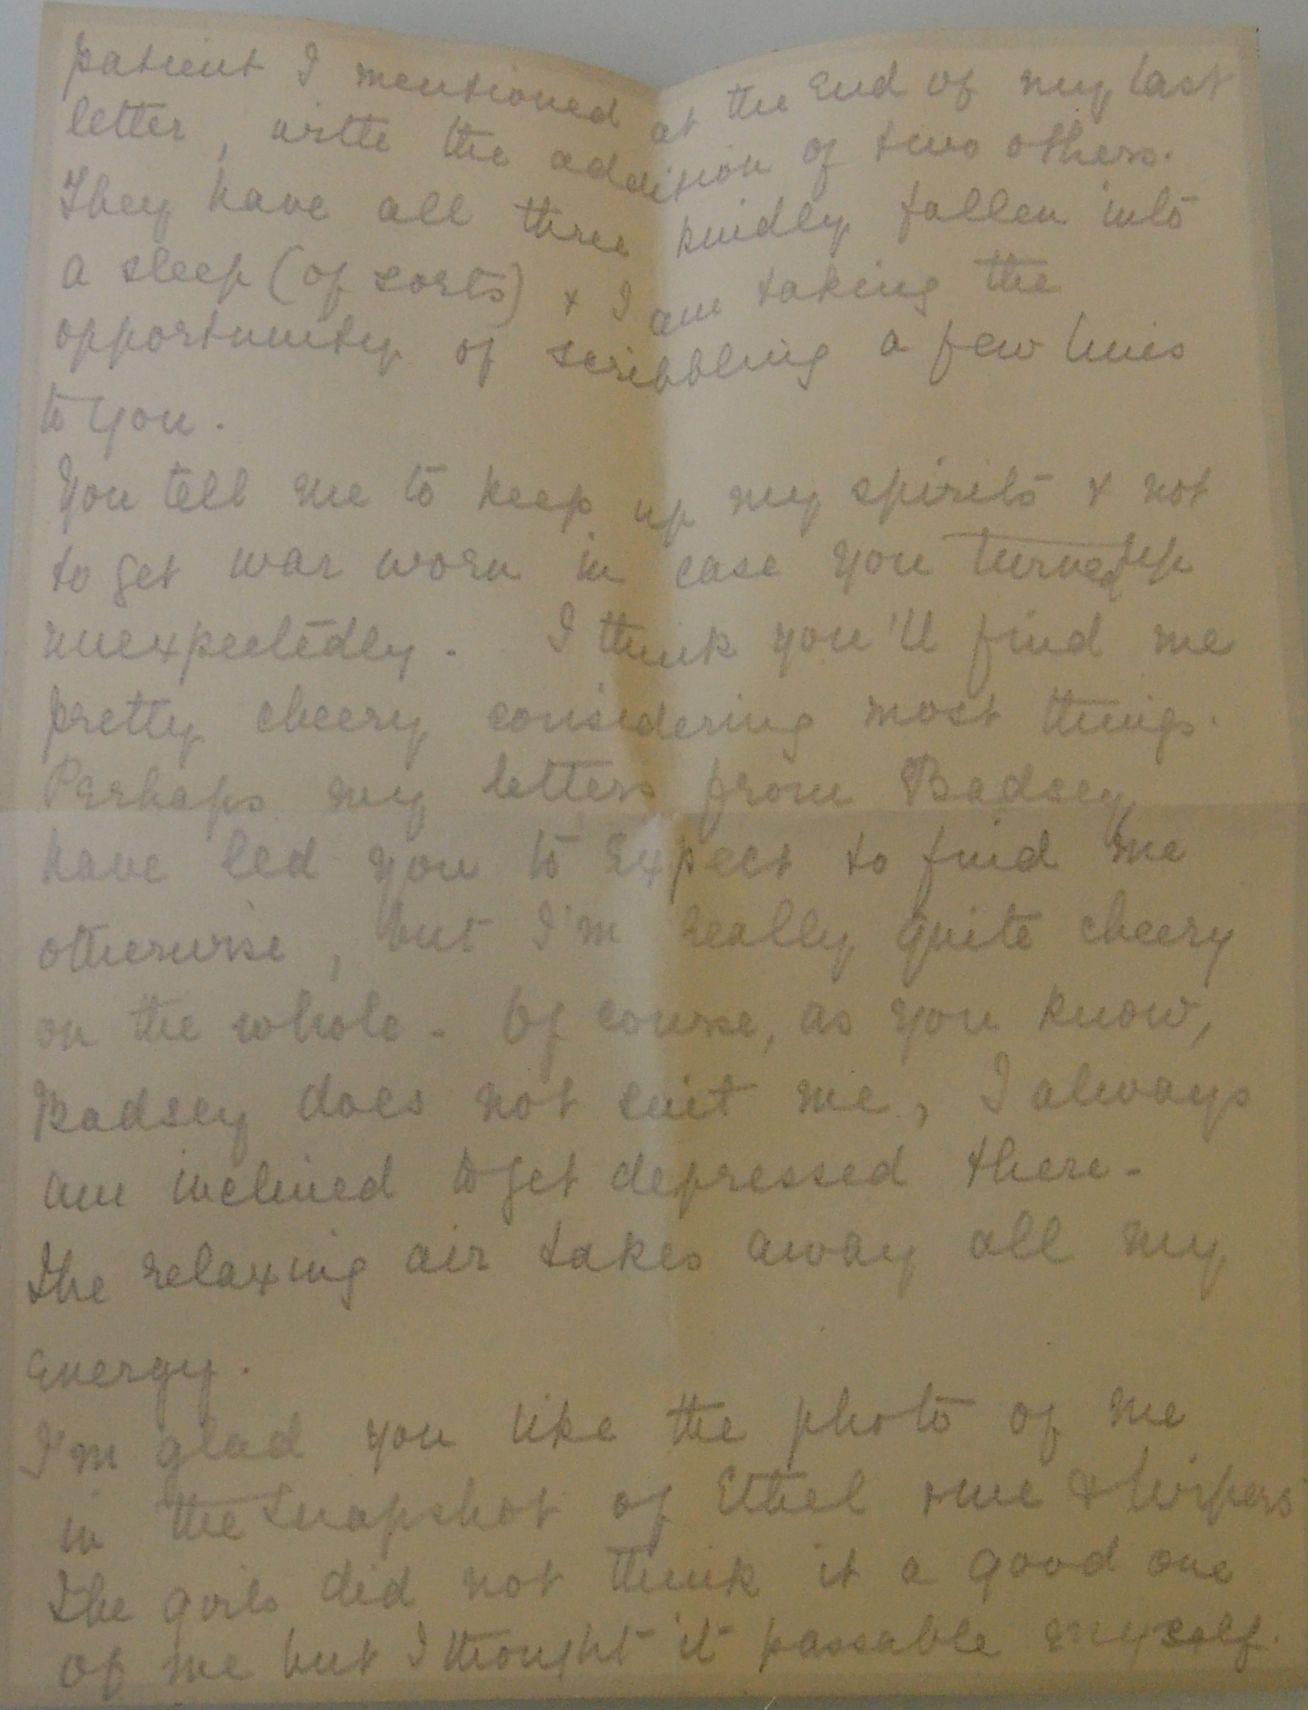 patient I mentioned at the end of my last
letter, with the addition of two others.
They have all three kindly fallen into
a sleep (of sorts) & I am taking the
opportunity of scribbling a few lines
to you.
You tell me to keep up my spirits & not
to get war worn in case you turned up
unexpectedly. I think you'll find me
pretty cheery considering most things.
Perhaps my letters from Badsey
have led you to expect to find me
otherwise, but I'm really quite cheery
on the whole - Of course, as you know,
Badsey does not suit me, I always
am inclined to get depressed there -
The relaxing air takes away all my
energy.
I'm glad you like the photo of me
in the snapshot of Ethel me &
The girls did not think it a good one
of me but I thought it passable myself.